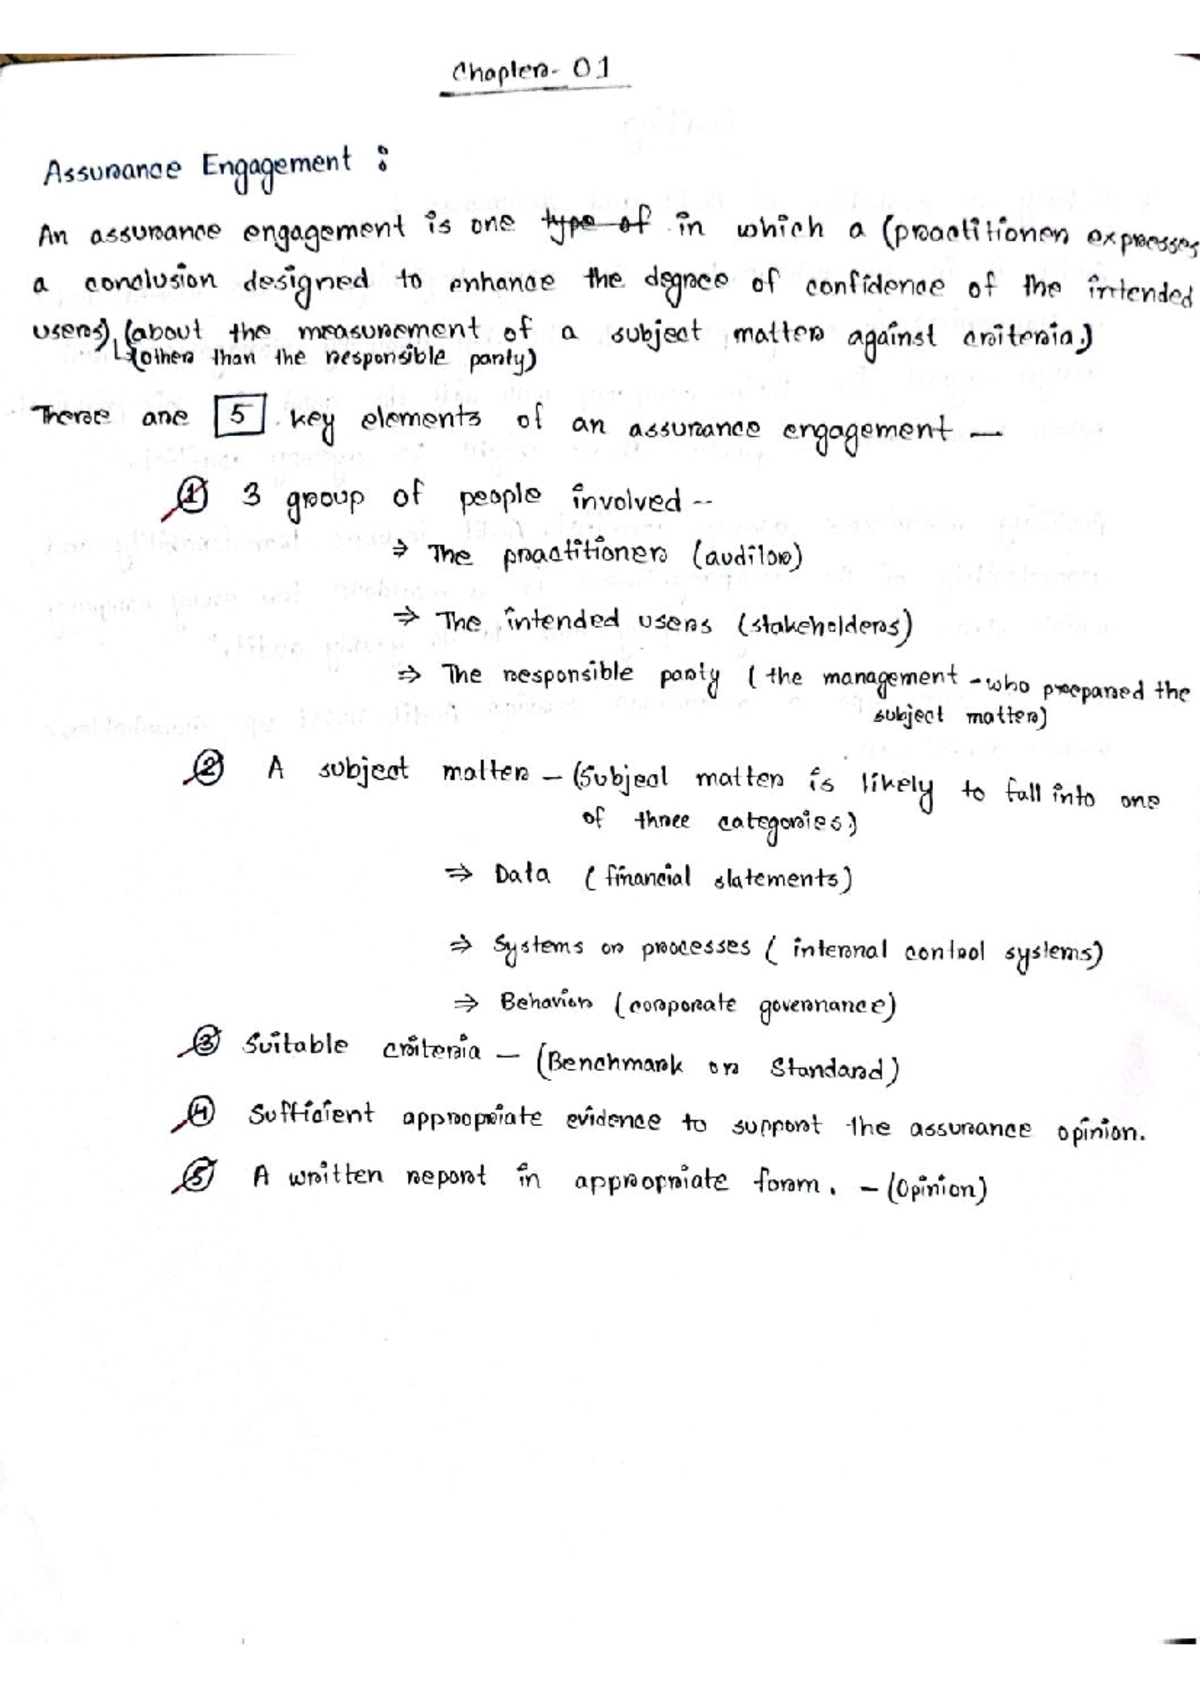 Chapter- 01
Assurance Engagement :
An assurance engagement is one type of in which a (practitioner expresses
a conclusion designed to enhance the degree of confidence of the intended
users) (about the measurement of a subject matter against criteria.)
(other than the responsible party)
There are 5 key elements of an assurance engagement —
1 3 group of people involved --
⇒ The practitioner (auditor)
⇒ The intended users (stakeholders)
⇒ The responsible party ( the management - who prepared the
subject matter)
2 A subject matter — (Subject matter is likely to fall into one
of three categories.)
⇒ Data ( financial statements)
⇒ Systems or processes ( internal control systems)
⇒ Behavior (corporate governance)
3 Suitable criteria — (Benchmark or Standard)
4 Sufficient appropriate evidence to support the assurance opinion.
5 A written report in appropriate form. — (Opinion)